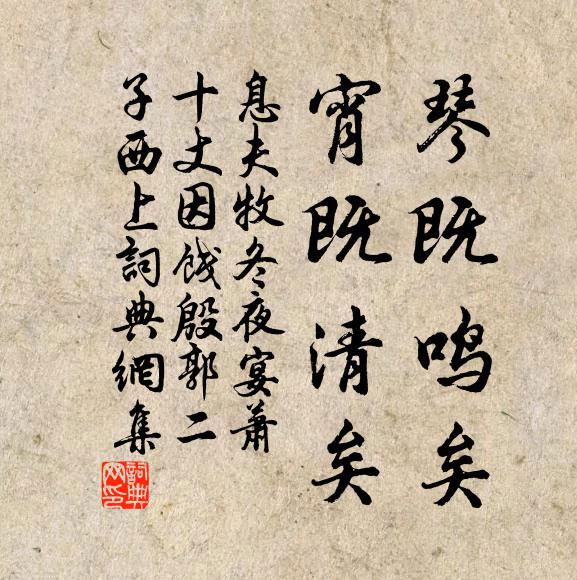 琴既鸣矣
宵既清矣
息夫牧冬夜宴萧
十丈因饯殷郭二
子西上詞典網集
詞典网印